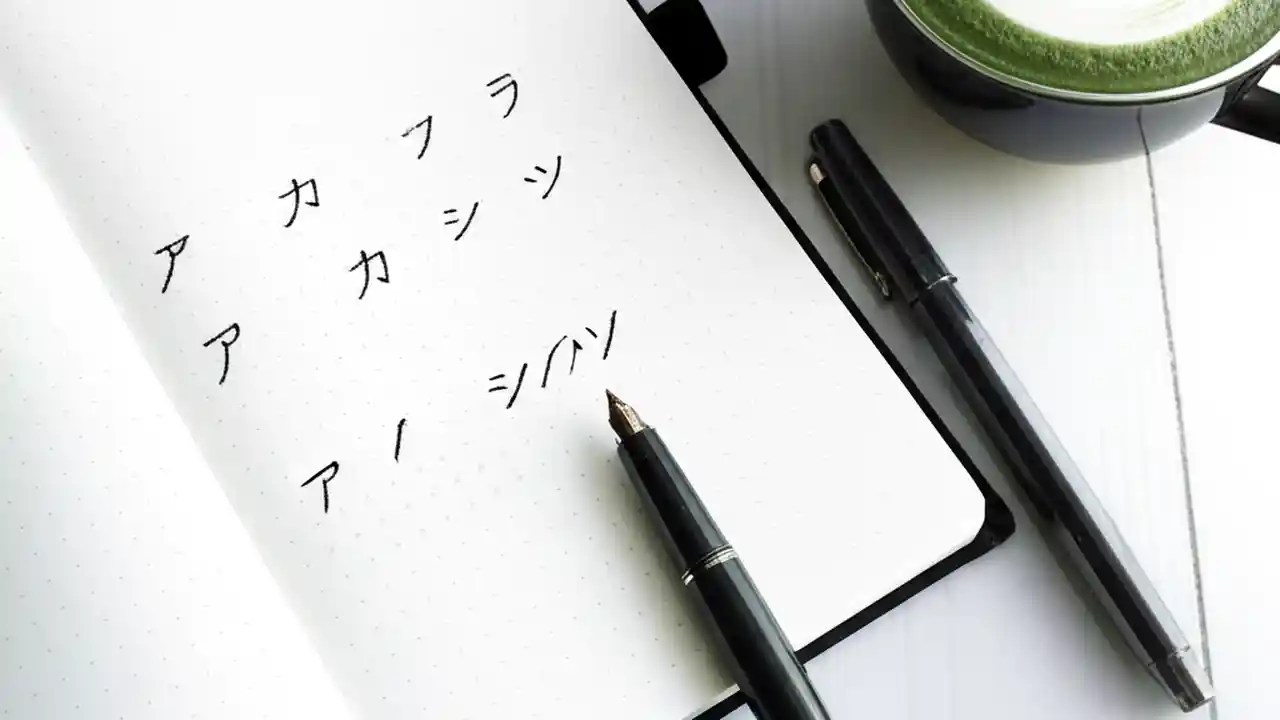 ア カ フ ラ
ア カ シ ツ
ア ノ シハソ